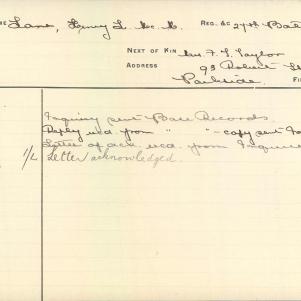 Lane, Henry L. Mc. K. REG. &c 27th Batt
NEXT OF KIN Mrs. F. L. Taylor
ADDRESS 93 Robert St
Parkside.
Inquiry sent Base Records.
Reply recd. from " " - copy sent In
Letter of ack. recd. from Inquire
1/2 Letter acknowledged.